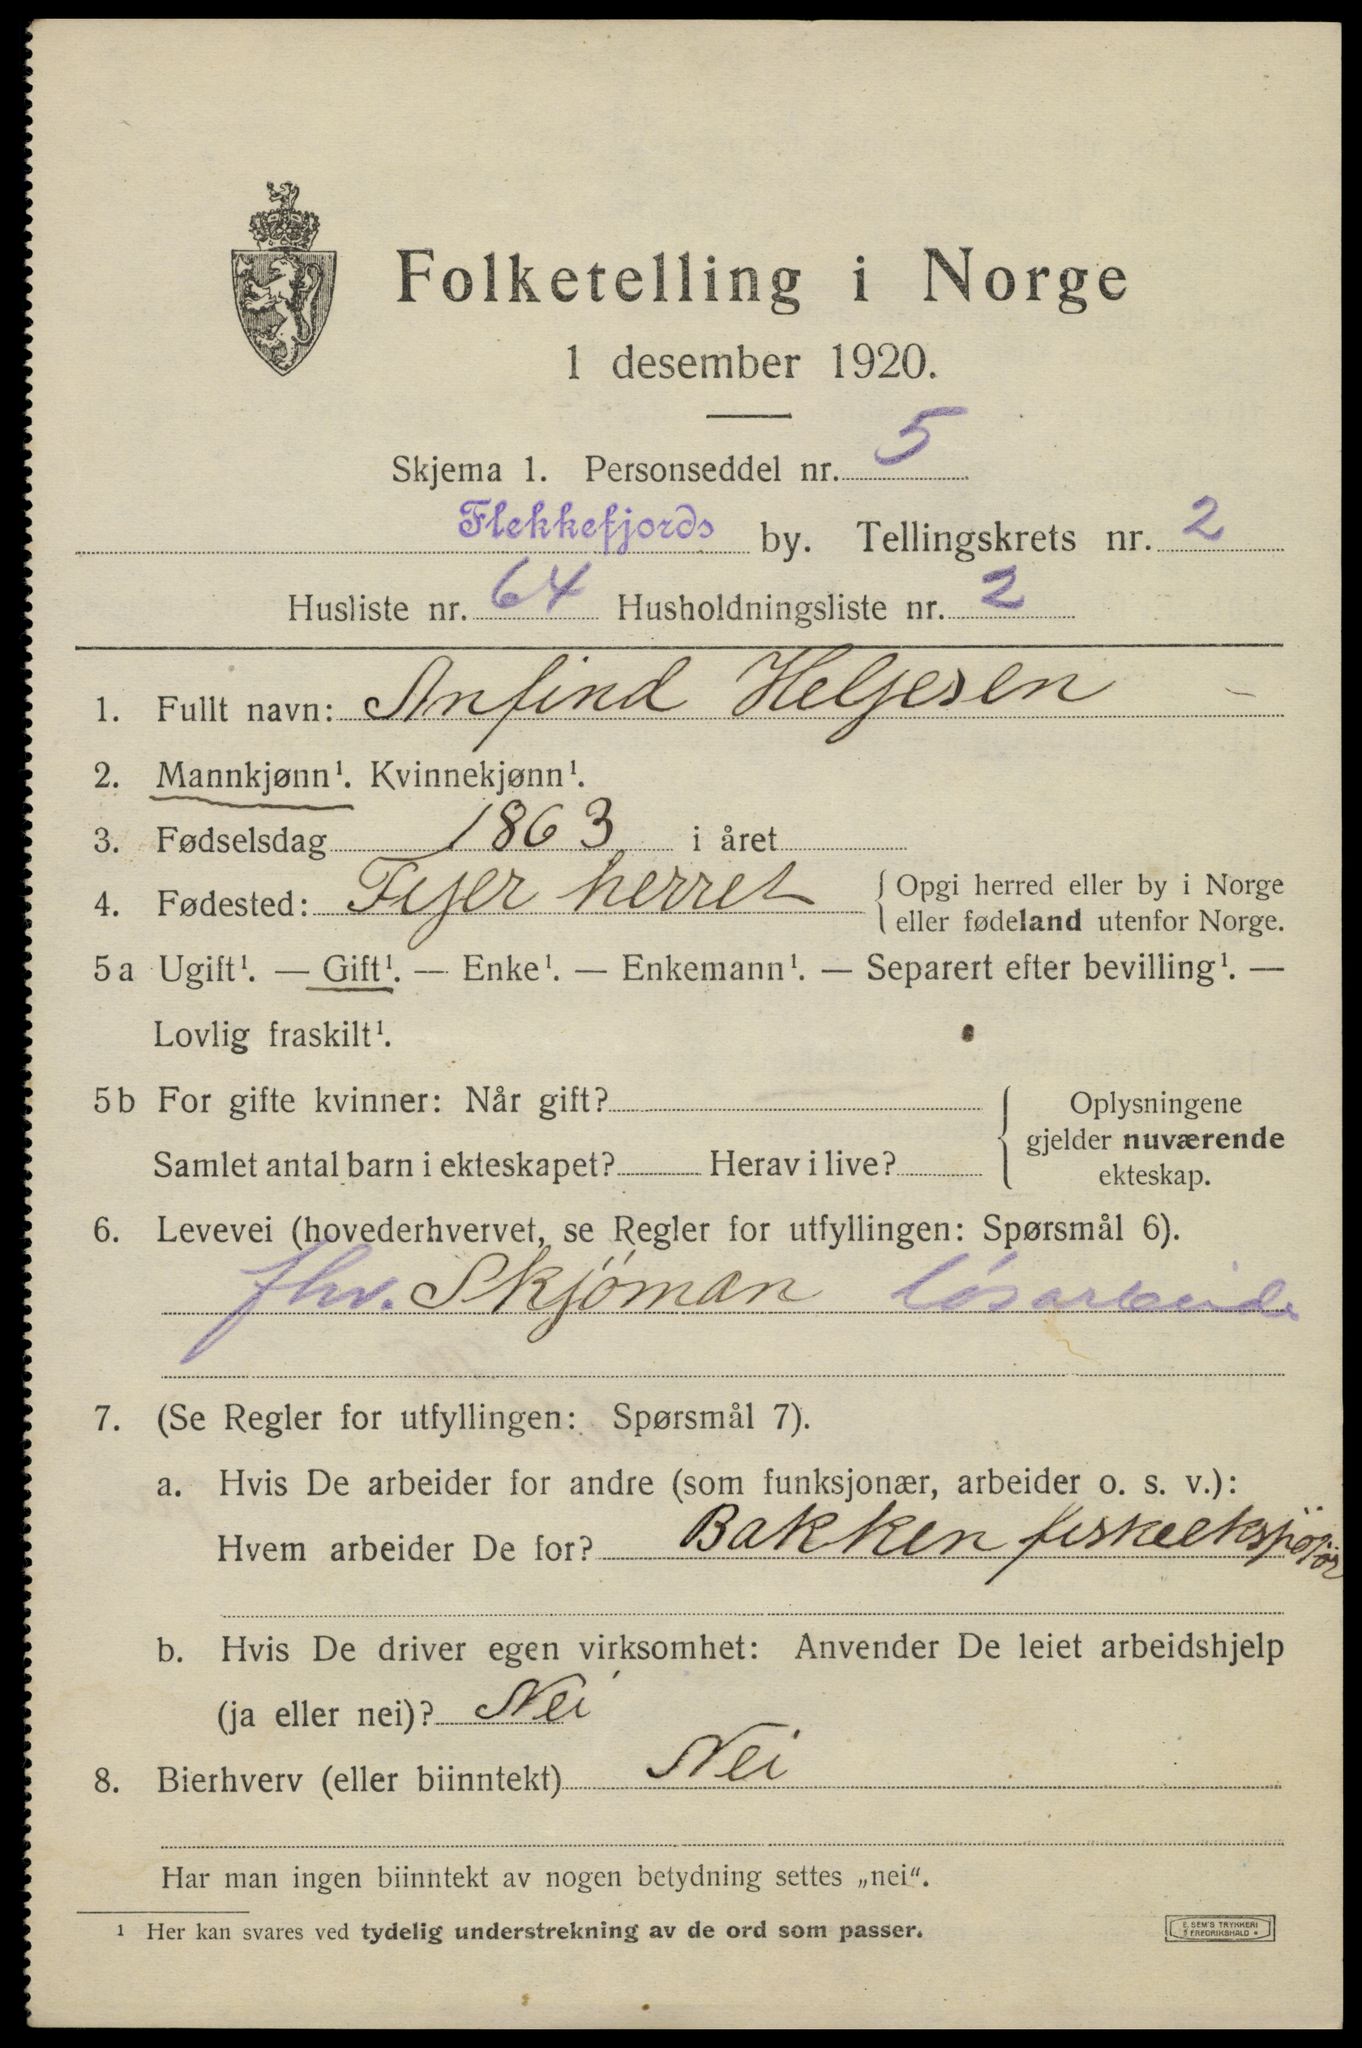 Folketelling i Norge
1 desember 1920.
Skjema 1. Personseddel nr. 5
Flekkefjords by. Tellingskrets nr. 2
Husliste nr. 64 Husholdningsliste nr. 2
1. Fullt navn: Anfind Helgesen
2. Mannkjønn¹. Kvinnekjønn¹.
3. Fødselsdag 1863 i året
4. Fødested: herret { Opgi herred eller by i Norge
eller fødeland utenfor Norge.
5a Ugift¹. — Gift¹. — Enke¹. — Enkemann¹. — Separert efter bevilling¹. —
Lovlig fraskilt¹.
5b For gifte kvinner: Når gift? { Oplysningene
gjelder nuværende
Samlet antal barn i ekteskapet? Herav i live?
ekteskap.
6. Levevei (hovederhvervet, se Regler for utfyllingen: Spørsmål 6).
fhv. Skjöman løsarbeider
7. (Se Regler for utfyllingen: Spørsmål 7).
a. Hvis De arbeider for andre (som funksjonær, arbeider o. s. v.):
Hvem arbeider De for? Bakken
b. Hvis De driver egen virksomhet: Anvender De leiet arbeidshjelp
(ja eller nei)? Nei
8. Bierhverv (eller biinntekt) Nei
Har man ingen biinntekt av nogen betydning settes „nei“.
¹ Her kan svares ved tydelig understrekning av de ord som passer.
E. SEM'S TRYKKERI
FREDRIKSHALD